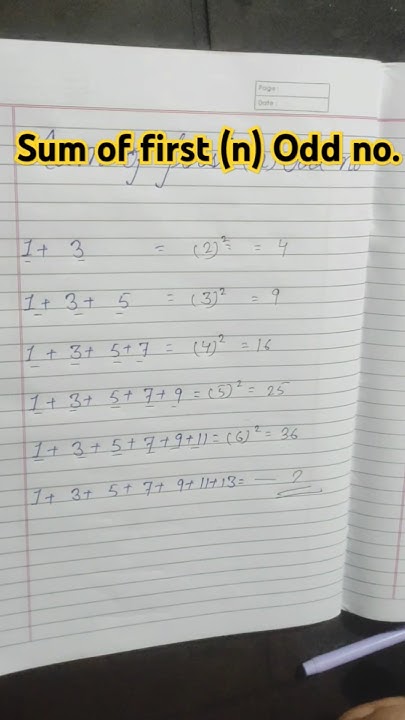 Page :
Date :
Sum of first (n) Odd no.
1 + 3 = (2)² = 4
1 + 3 + 5 = (3)² = 9
1 + 3 + 5 + 7 = (4)² = 16
1 + 3 + 5 + 7 + 9 = (5)² = 25
1 + 3 + 5 + 7 + 9 + 11 = (6)² = 36
1 + 3 + 5 + 7 + 9 + 11 + 13 = — ?